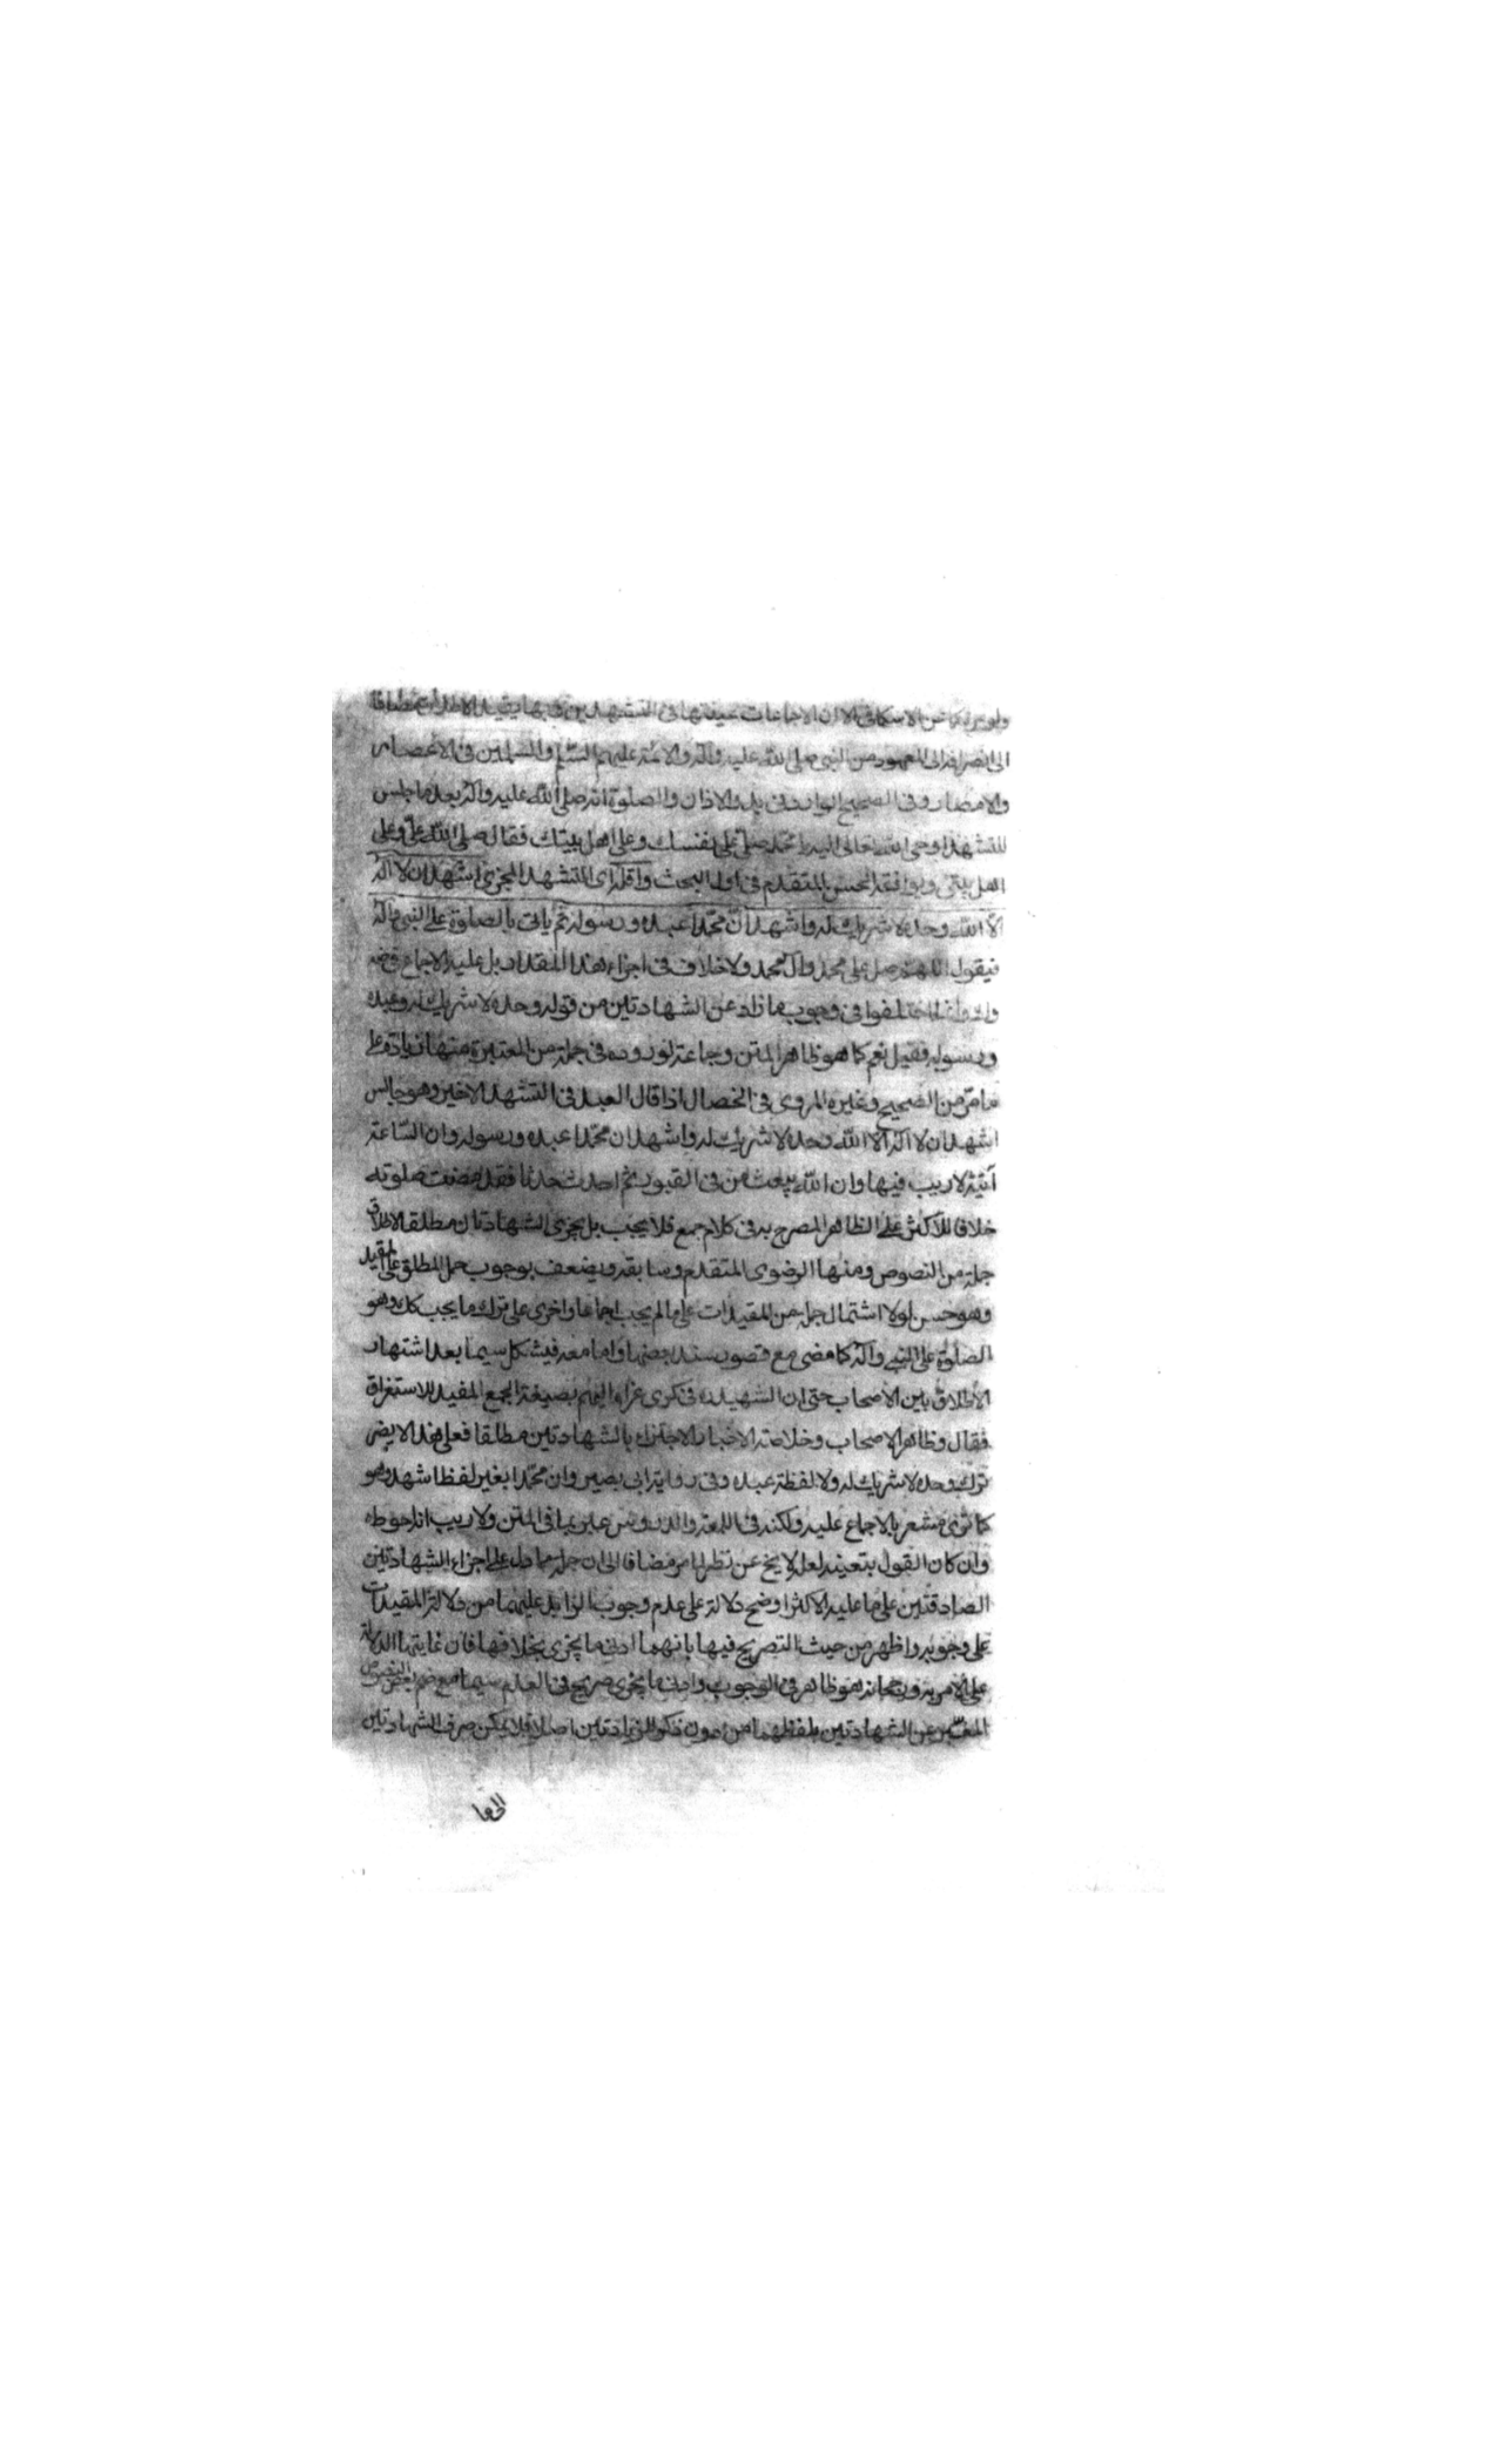 الاسكافي الا ان الاجماعات عينتها في التشهدين وبها يقيد الاطلاق مضافا
الى انصرافه الى المعهود من النبي صلى الله عليه واله والائمة عليهم السلم والمسلمين في الاعصار
والامصار وفي الصحيح الوارد في بدو الاذان والصلوة انه صلى الله عليه واله بعد ما جلس
للتشهد اوحى الله تعالى اليه يا محمد صل على نفسك وعلى اهل بيتك فقال صلى الله على وعلى
اهل بيتي ويوافقه الحسن المتقدم في اول البحث واقله اى التشهد المجزي اشهد ان لا اله
الا الله وحده لا شريك له واشهد ان محمدا عبده ورسوله ثم ياتى بالصلوة على النبي واله
فيقول اللهم صل على محمد وال محمد ولا خلاف في اجزاء هذا المقدار بل عليه الاجماع في
وانما اختلفوا في وجوب ما زاد عن الشهادتين من قوله وحده لا شريك له وعبده
ورسوله فقيل نعم كما هو ظاهر المتن وجماعة لوروده في جملة من المعتبرة منها زيادة على
ما مر من الصحيح وغيره المروى في الخصال اذا قال العبد في التشهد الاخير وهو جالس
اشهد ان لا اله الا الله وحده لا شريك له واشهد ان محمدا عبده ورسوله وان الساعة
آتية لا ريب فيها وان الله يبعث من في القبور ثم احدث حدثا فقد مضت صلوته
خلافا للاكثر على الظاهر المصرح به في كلام جمع فلا يجب بل يجزى الشهادتان مطلقا لاطلاق
جملة من النصوص ومنها الرضوى المتقدم وسابقه ويضعف بوجوب حمل المطلق على المقيد
وهو حسن لولا اشتمال جملة من المقيدات على ما لم يجب اجماعا واخرى على ترك ما يجب كك وهو
الصلوة على النبي واله كما مضى مع قصور سند بعضها واما معه فيشكل سيما بعد اشتهار
الاطلاق بين الاصحاب حتى ان الشهيد ره في كرى عزاه اليهم بصيغة الجمع المفيد للاستغراق
فقال وظاهر الاصحاب وخلاصة الاخبار الاجتزاء بالشهادتين مطلقا فعلى هذا لا يضر
ترك وحده لا شريك له ولا لفظة عبده وفي رواية ابى بصير وان محمدا بغير لفظ اشهد وهو
كما ترى مشعر بالاجماع عليه ولكنه في اللمعة والدروس عبر بما في المتن ولا ريب انه احوط
وان كان القول بتعينه لعله لا يخ عن نظر لما مر مضافا الى ان جملة مما دل على اجزاء الشهادتين
الصادقتين على ما عليه الاكثر اوضح دلالة على عدم وجوب الزايد عليهما من دلالة المقيدات
على وجوبه واظهر من حيث التصريح فيها بانهما ادنى ما يجزى بخلافها فان غايتها الدلالة
على الامر به ورجحانه هو ظاهر في الوجوب وادنى ما يجزى صريح في العدم سيما مع ضم بعض النصوص
المعبر عن الشهادتين بلفظهما من دون ذكر الزيادتين اصلا فلا يمكن صرف الشهادتين
الى ما